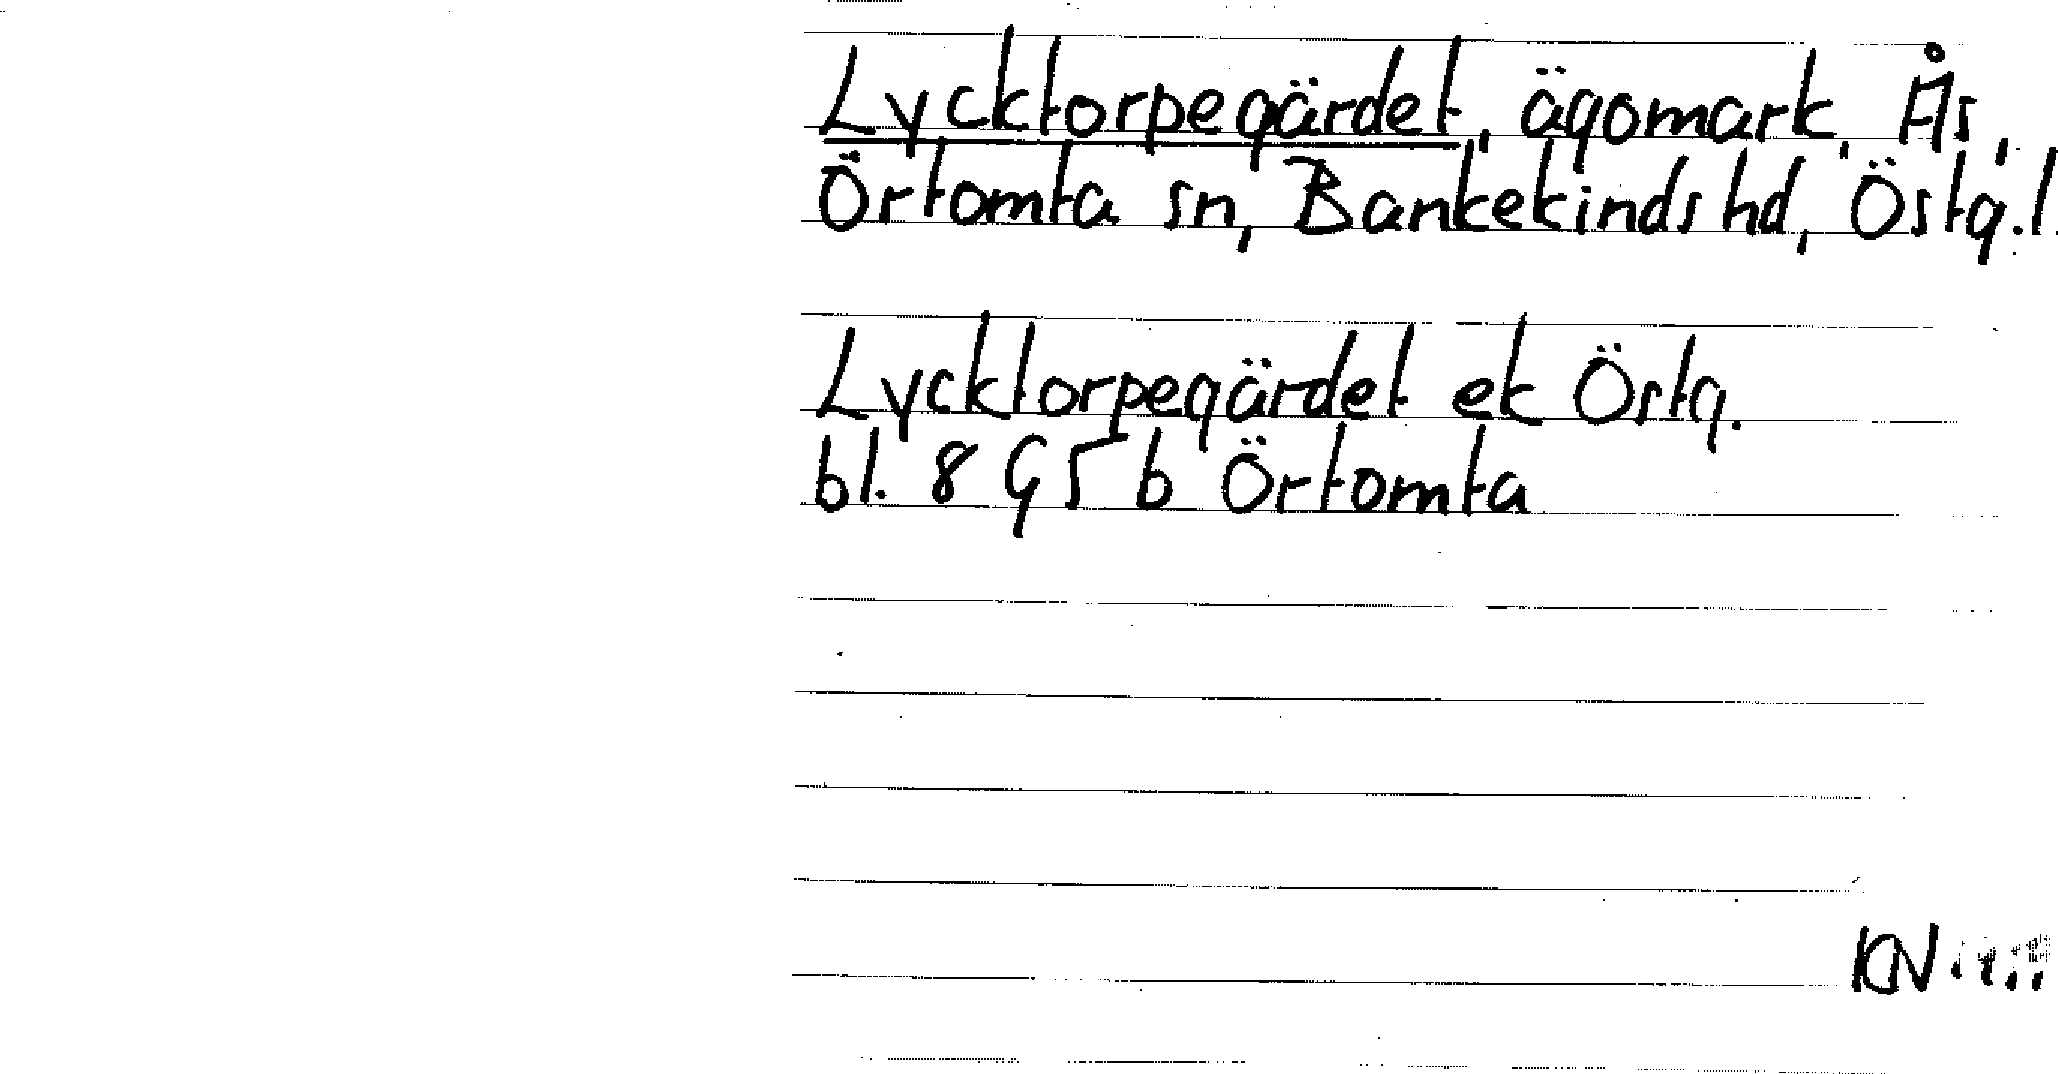 Lycktorpegärdet, ägomark, Ås,
Örtomta sn, Bankekinds hd, Östg.l.
Lycktorpegärdet ek Östg.
bl. 8 G 5 b Örtomta
KN